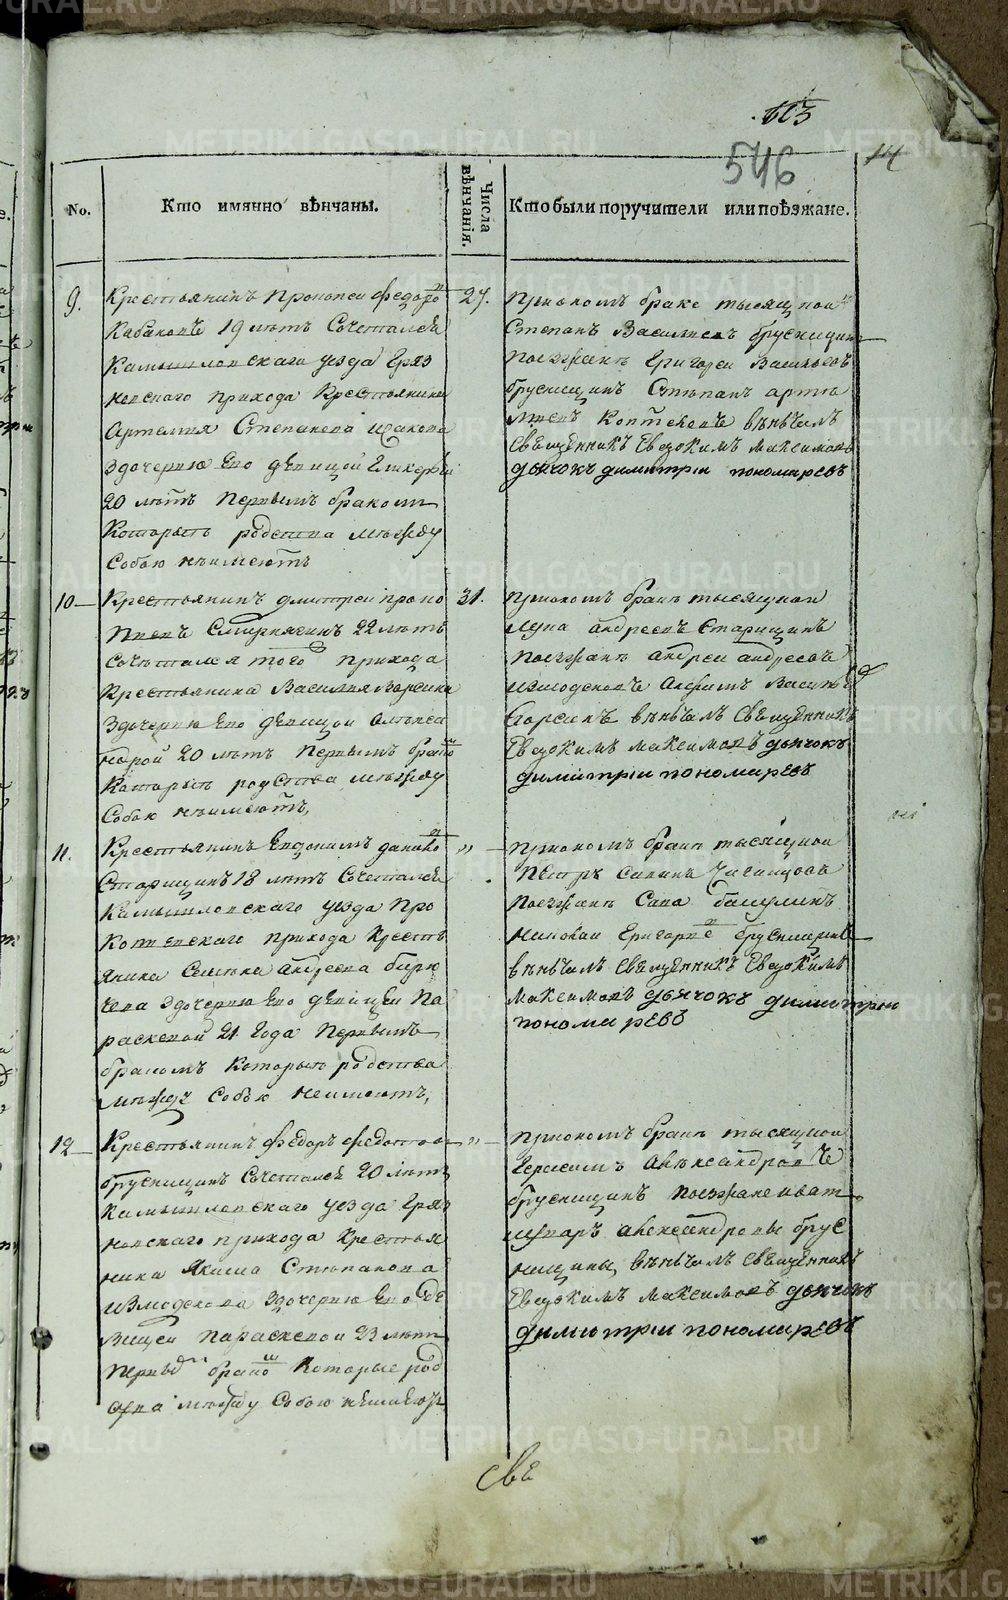 546
14
No.
Кто имянно вѣнчаны.
Числа вѣнчанія.
Кто были поручители или поѣзжане.
9.
Крестьянинъ Прокопеи Федоро
Кабаковъ 19 лѣтъ Сочетался
Камышловскаго уезда Гряз
новскаго прихода Крестьянина
Артемия Степанова
здочерию Ево девицой Гликерьи
20 лѣтъ Первымъ бракомъ
Которыѣ родства между
Собою неимеютъ
27.
Приономъ браке тысяцкои
Степанъ Васильевъ брусницынъ
Поезжанѣ Григореи Васильевъ
брусницынъ Степанъ арте
мьевъ Коптеловъ вѣнчалъ
Свещенникъ Евдокимъ Максимовъ
дьячокъ димитрии пономаревъ
10
Крестьянинъ дмитреи проко
Пьевъ Смирнягинъ 22 лѣтъ
Сочетался того прихода
Крестьянина Василия
Здочерию Ево девицои Алекса
ндрой 20 лѣтъ Первымъ брако
Которыѣ родства между
Собою неимеютъ,
31.
Приономъ бракѣ тысяцкои
Лука андреевъ Старицынъ
Поезжанѣ андреи андреевъ
измоденовъ Василье
вѣнчалъ Свещенникъ
Евдокимъ максимовъ дьячокъ
димитрии пономаревъ
11.
Крестьянинъ Евдокимъ данило
Старицынъ 18 лѣтъ Сочетался
Камышловскаго уезда Про
Копьевскаго прихода Кресть
янина Семена Андреева бирю
чева Здочерию Ево девицеи Па
раскевой 21 Года Первымъ
бракомъ Которыѣ родства
между Собою неимеютъ,
"
Приономъ бракѣ тысяцкои
Петръ Савинъ
Поезжанѣ Сава
Николаи Григорье брусницынъ
вѣнчалъ Свещенникъ Евдокимъ
Максимовъ дьячокъ димитрии
пономаревъ
12
Крестьянинъ Федоръ Федотов
брусницынъ Сочетался 20 лѣтъ
Камышловскаго уезда Гряз
новскаго прихода Крестья
нина Якима Степанова
измоденова Здочерию Ево де
вицеи Параскевои 23 лѣтъ
Первы брако Которые род
ства между Собою неимеютъ
"
Приономъ бракѣ тысяцкои
Герасимъ Александровъ
брусницынъ Поезжане
александровы брус
ницыны вѣнчалъ свещенникъ
Евдокимъ Максимовъ дьячокъ
димитрии пономаревъ
све
METRIKI.GASO-URAL.RU